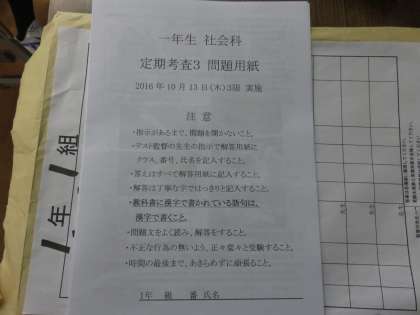 一年生 社会科
定期考査3 問題用紙
2016年10月13日(木)3限 実施
注意
・指示があるまで、問題を開かないこと。
・テスト監督の先生の指示で解答用紙に
クラス、番号、氏名を記入すること。
・答えはすべて解答用紙に記入すること。
・解答は丁寧な字ではっきりと記入すること。
・教科書に漢字で書かれている語句は、
漢字で書くこと。
・問題文をよく読み、解答をすること。
・不正な行為の無いよう、正々堂々と受験すること。
・時間の最後まで、あきらめずに頑張ること。
1年 組 番 氏名
1年1組